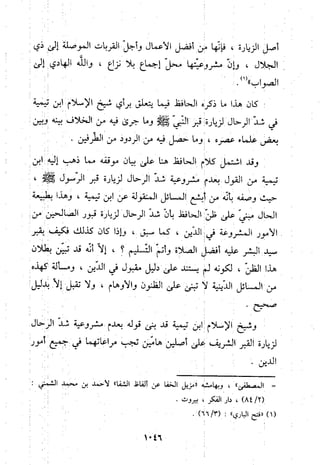 أصل الزيارة ، فإنها من أفضل الأعمال وأجلّ القربات الموصلة إلى ذي
الجلال ، وإنّ مشروعيتها محلّ إجماع بلا نزاع ، والله الهادي إلى
الصواب»(١) .
كان هذا ما ذكره الحافظ فيما يتعلق برأي شيخ الإسلام ابن تيمية
في شدّ الرحال لزيارة قبر النبيّ ﷺ وما جرى فيه من الخلاف بينه وبين
بعض علماء عصره ، وما حصل فيه من الردود من الطرفين .
وقد اشتمل كلام الحافظ هنا على بيان موقفه مما ذهب إليه ابن
تيمية من القول بعدم مشروعية شدّ الرحال لزيارة قبر الرسول ﷺ ،
حيث وصفه بأنّه من أبشع المسائل المنقولة عن ابن تيمية ، وهذا بطبيعة
الحال مبنيّ على ظنّ الحافظ بأنّ شدّ الرحال لزيارة قبور الصالحين من
الأمور المشروعة في الدّين ، كما سبق ، وإذا كان كذلك فكيف بقبر
سيد البشر عليه أفضل الصلاة وأتمّ التسليم ؟ ، إلاّ أنّه قد تبيّن بطلان
هذا الظنّ ، لكونه لم يستند على دليل مقبول في الدّين ، ومسألة كهذه
من المسائل الدّينية لا تبنى على الظنون والأوهام ، ولا تقبل إلاّ بدليل
صحيح .
وشيخ الإسلام ابن تيمية قد بنى قوله بعدم مشروعية شدّ الرحال
لزيارة القبر الشريف على أصلين هامّين تجب مراعاتهما في جميع أمور
الدين .
= المصطفى» ، وبهامشه «مزيل الخفا عن ألفاظ الشفا» لأحمد بن محمد الشمني :
(٨٤/٢) ، دار الفكر ، بيروت .
(١) «فتح الباري» : (٦٦/٣) .
١٠٤٦